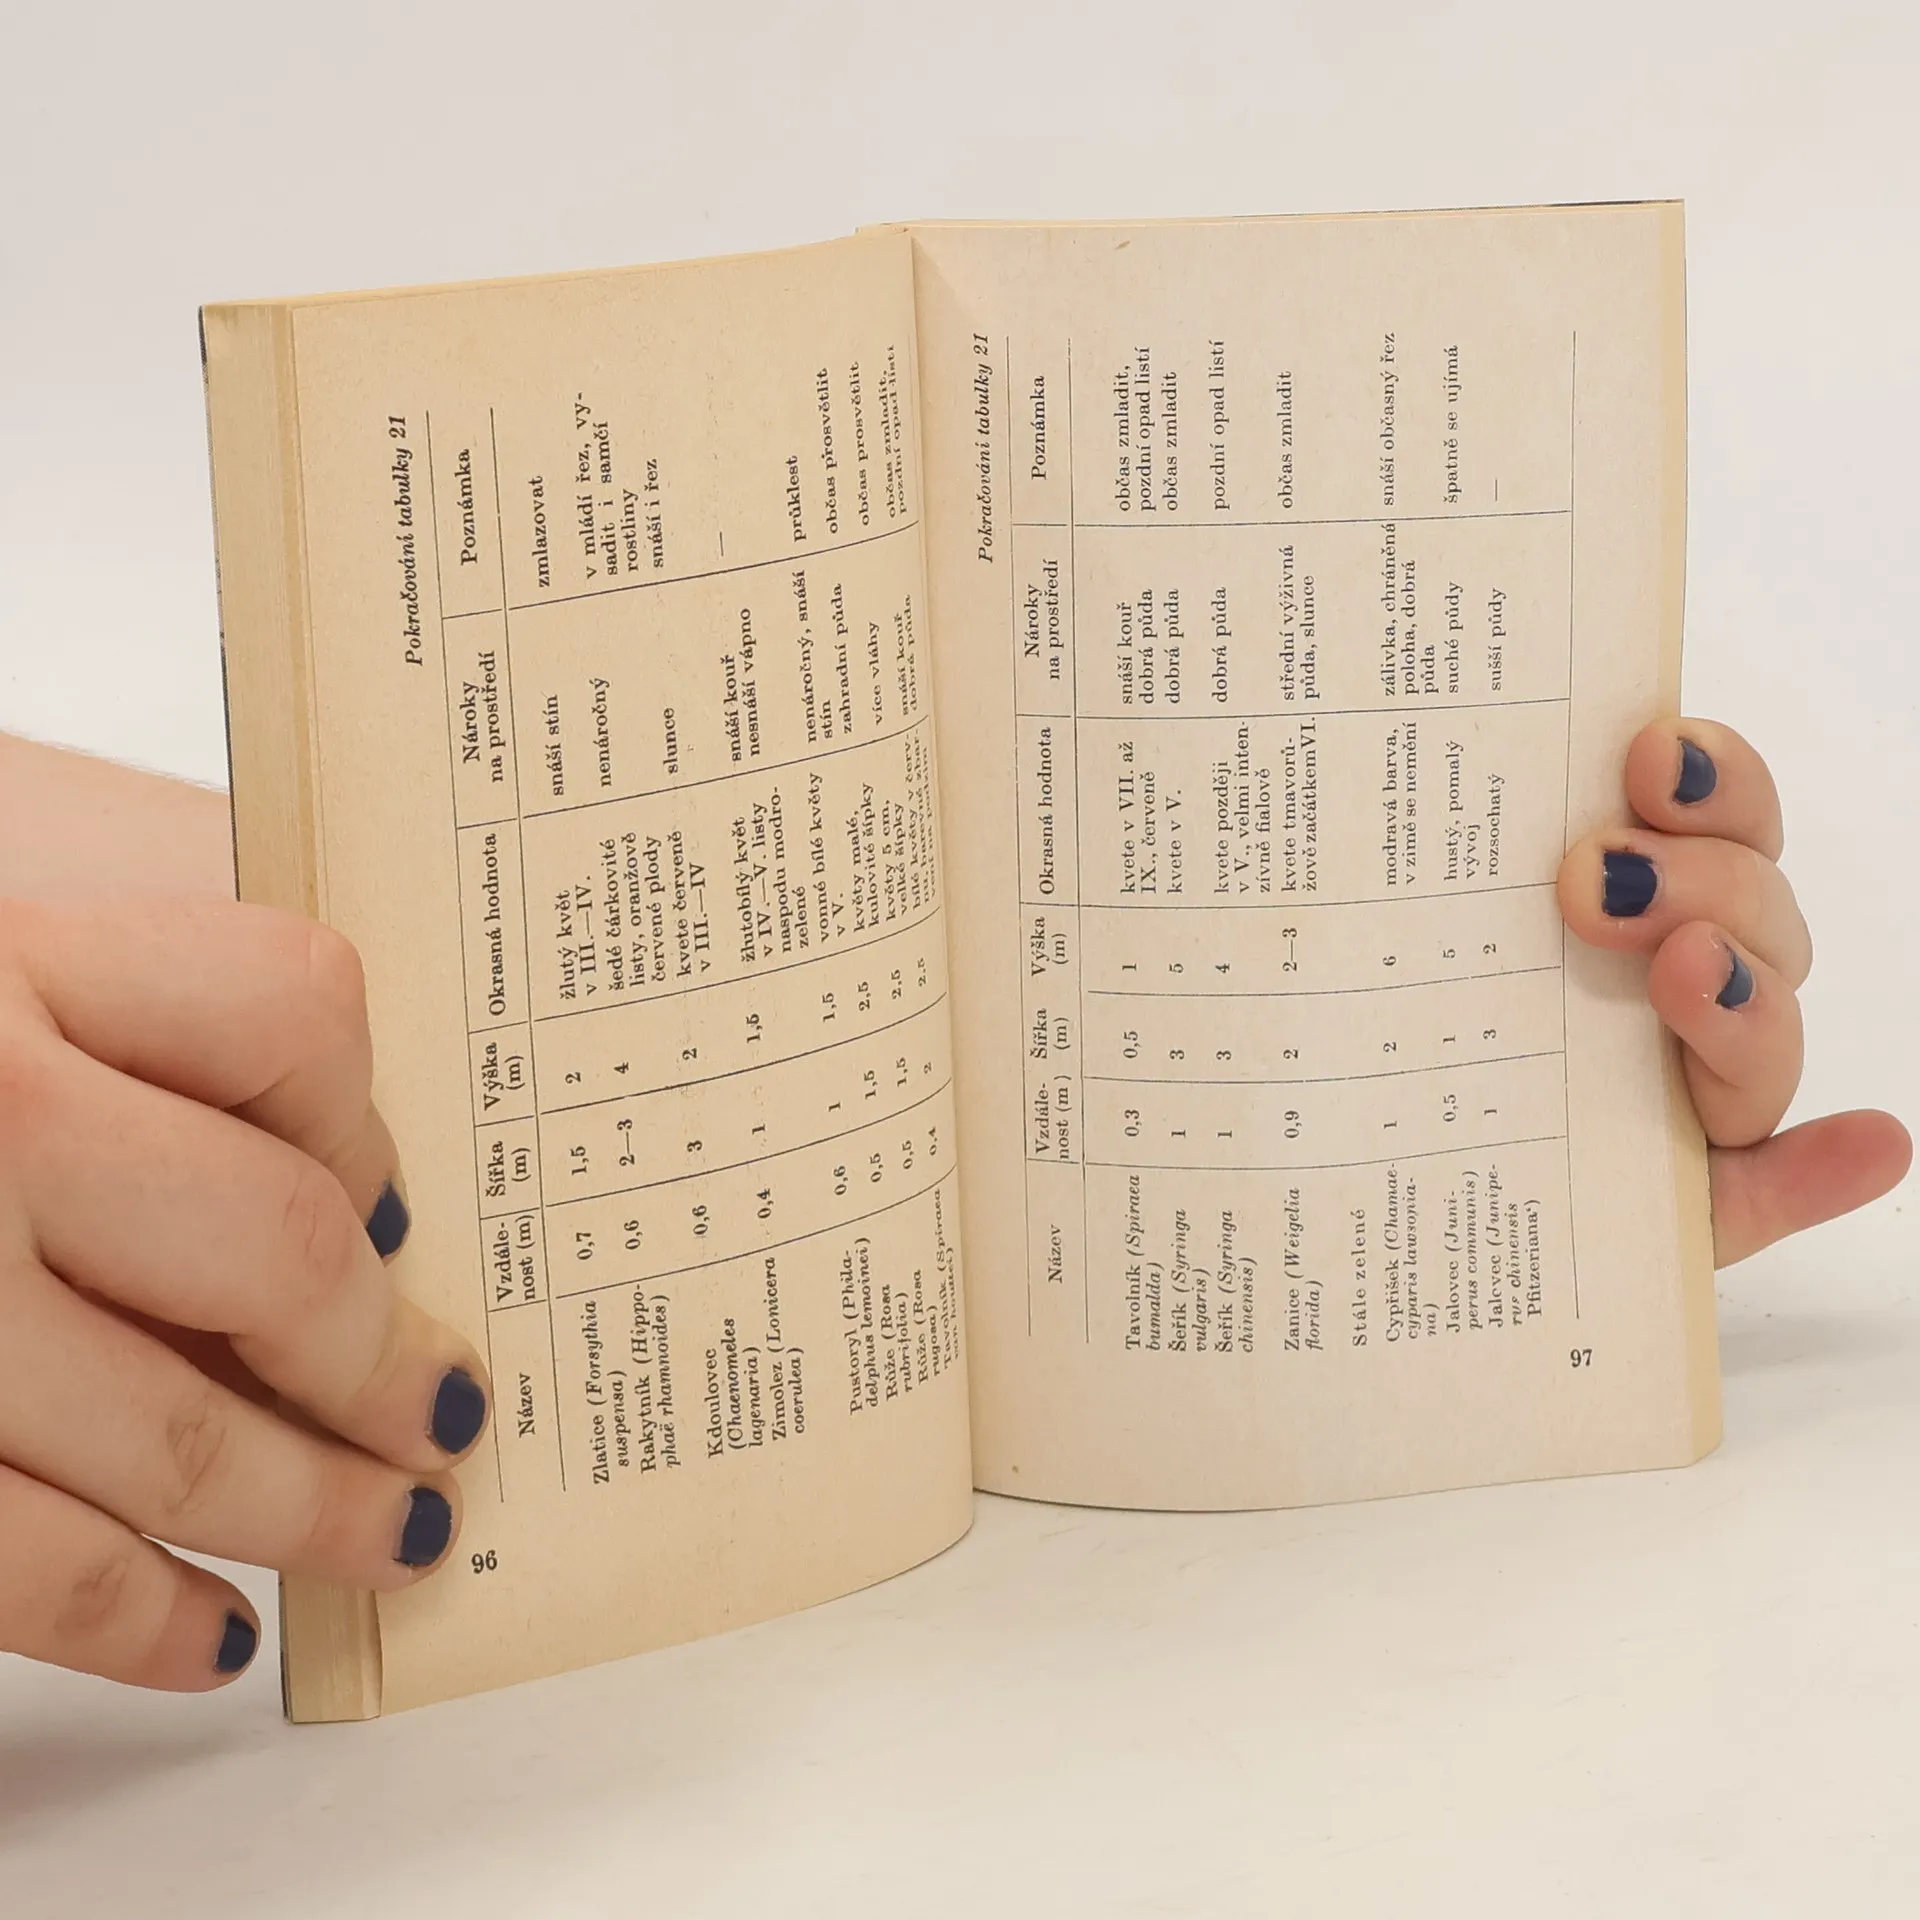 Pokračování tabulky 21
Název | Vzdále-nost (m) | Šířka (m) | Výška (m) | Okrasná hodnota | Nároky na prostředí | Poznámka
Zlatice (Forsythia | 0,7 | 1,5 | 2 | žlutý květ | snáší stín | zmlazovat
suspensa) | v III.—IV.
Rakytník (Hippo- | 0,6 | 2—3 | 4 | šedé čárkovité | nenáročný | v mládí řez, vy-
phaë rhamnoides) | listy, oranžově | sadit i samčí
červené plody | rostliny
Kdoulovec | 0,6 | 3 | 2 | kvete červeně | slunce | snáší i řez
(Chaenomeles | v III.—IV
lagenaria)
Zimolez (Lonicera | 0,4 | 1 | 1,5 | žlutobílý květ | snáší kouř | —
coerulea) | v IV.—V. listy | nesnáší vápno
naspodu modro-
zelené
Pustoryl (Phila- | 0,6 | 1 | 1,5 | vonné bílé květy | nenáročný, snáší | průklest
delphus lemoinei) | v V. | stín
Růže (Rosa | 0,5 | 1,5 | 2,5 | květy malé, | zahradní půda | občas prosvětlit
rubrifolia) | kulovité šípky
Růže (Rosa | 0,5 | 1,5 | 2,5 | květy 5 cm, | více vláhy | občas prosvětlit
rugosa) | velké šípky
Tavolník (Spiraea | 0,4 | 2 | 2,5 | bílé květy v červ- | snáší kouř | občas zmladit,
van houtei) | nu, barevné zbar- | dobrá půda | pozdní opad listí
vení na podzim
96
Pokračování tabulky 21
Název | Vzdále-nost (m) | Šířka (m) | Výška (m) | Okrasná hodnota | Nároky na prostředí | Poznámka
Tavolník (Spiraea | 0,3 | 0,5 | 1 | kvete v VII. až | snáší kouř | občas zmladit,
bumalda) | IX., červeně | dobrá půda | pozdní opad listí
Šeřík (Syringa | 1 | 3 | 5 | kvete v V. | dobrá půda | občas zmladit
vulgaris)
Šeřík (Syringa | 1 | 3 | 4 | kvete později | dobrá půda | pozdní opad listí
chinensis) | v V., velmi inten-
zívně fialově
Zanice (Weigelia | 0,9 | 2 | 2—3 | kvete tmavorů- | střední výživná | občas zmladit
florida) | žově začátkemVI. | půda, slunce
Stále zelené
Cypřišek (Chamae- | 1 | 2 | 6 | modravá barva, | zálivka, chráněná | snáší občasný řez
cyparis lawsonia- | v zimě se nemění | poloha, dobrá
na) | půda
Jalovec (Juni- | 0,5 | 1 | 5 | hustý, pomalý | suché půdy | špatně se ujímá
perus communis) | vývoj
Jalovec (Junipe- | 1 | 3 | 2 | rozsochatý | sušší půdy | —
rus chinensis
Pfitzeriana‘)
97